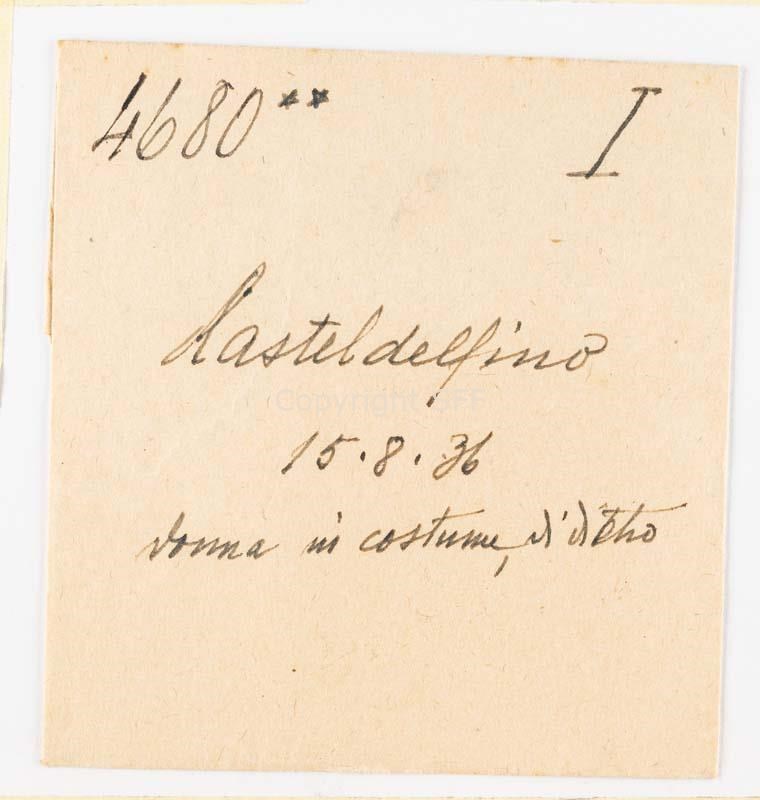 4680** I
Casteldelfino
Copyright
15.8.36
donna in costume, di dietro